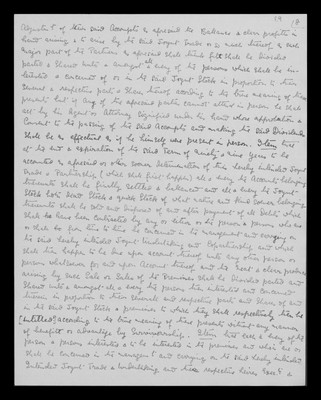 19 18
Adjustmt of their said Accompts as aforesaid the Ballance & clear profitts in
hand arising & to arise by the said Joynt Trade or so much thereof as such
major part of the Partners as aforesaid shall think fitt shall be divided
parted & shared unto & amongst all & every of the persons which shall be in-
terested & concerned of or in the said Joynt Stock in proportion to their
several & respective parts & shares thereof according to the true meaning of these
presents but if any of the aforesaid parties cannot attend in person he shall
act by his Agent or Attorney Signified under his hand whose approbation &
Consent to the passing of the said Accompts and making the said Dividends
shall be as effectual as if he himself was present in person. Item that
at the end & expiration of the said Term of Ninety & nine years to be
accounted as aforesaid or other sooner determination of this hereby intended Joynt
Trade & Partnership (which shall first happen) all & every the Accounts belonging
thereunto shall be finally settled & ballanced and all & every the Joynt
Stock both Dead Stock & Quick Stock of what nature and kind soever belonging
thereunto shall be sold and disposed of and after payment of all Debts which
shall have been Contracted by any or either of the person & persons who are
or shall from time to time be concerned in the management and carrying on
the said hereby intended Joynt undertaking and Copartnership and which
shall then happen to be due upon account thereof unto any other person or
persons whatsoever for and upon Account thereof and the Neat & clear produce
arising by such Sale or Sales of the Premises shall be divided parted and
shared unto & amongst all & every the persons then interested and concerned
therein in proportion to their severall and respective parts and shares of and
in the said Joynt Stock & premisses to which they shall respectively then be
Intitled according to the true meaning of these presents without any manner
of benefitt or advantage by Survivorship. Item that each & every of the
person & persons interested & to be interested in the premisses and who are or
shall be concerned in the managemt and carrying on the said hereby intended
Intended Joynt Trade & undertaking and their respective heirs, Execrs &